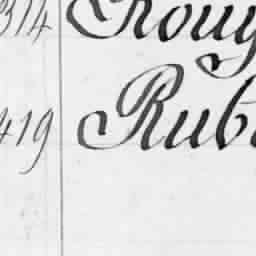 314 Roug
419 Rub